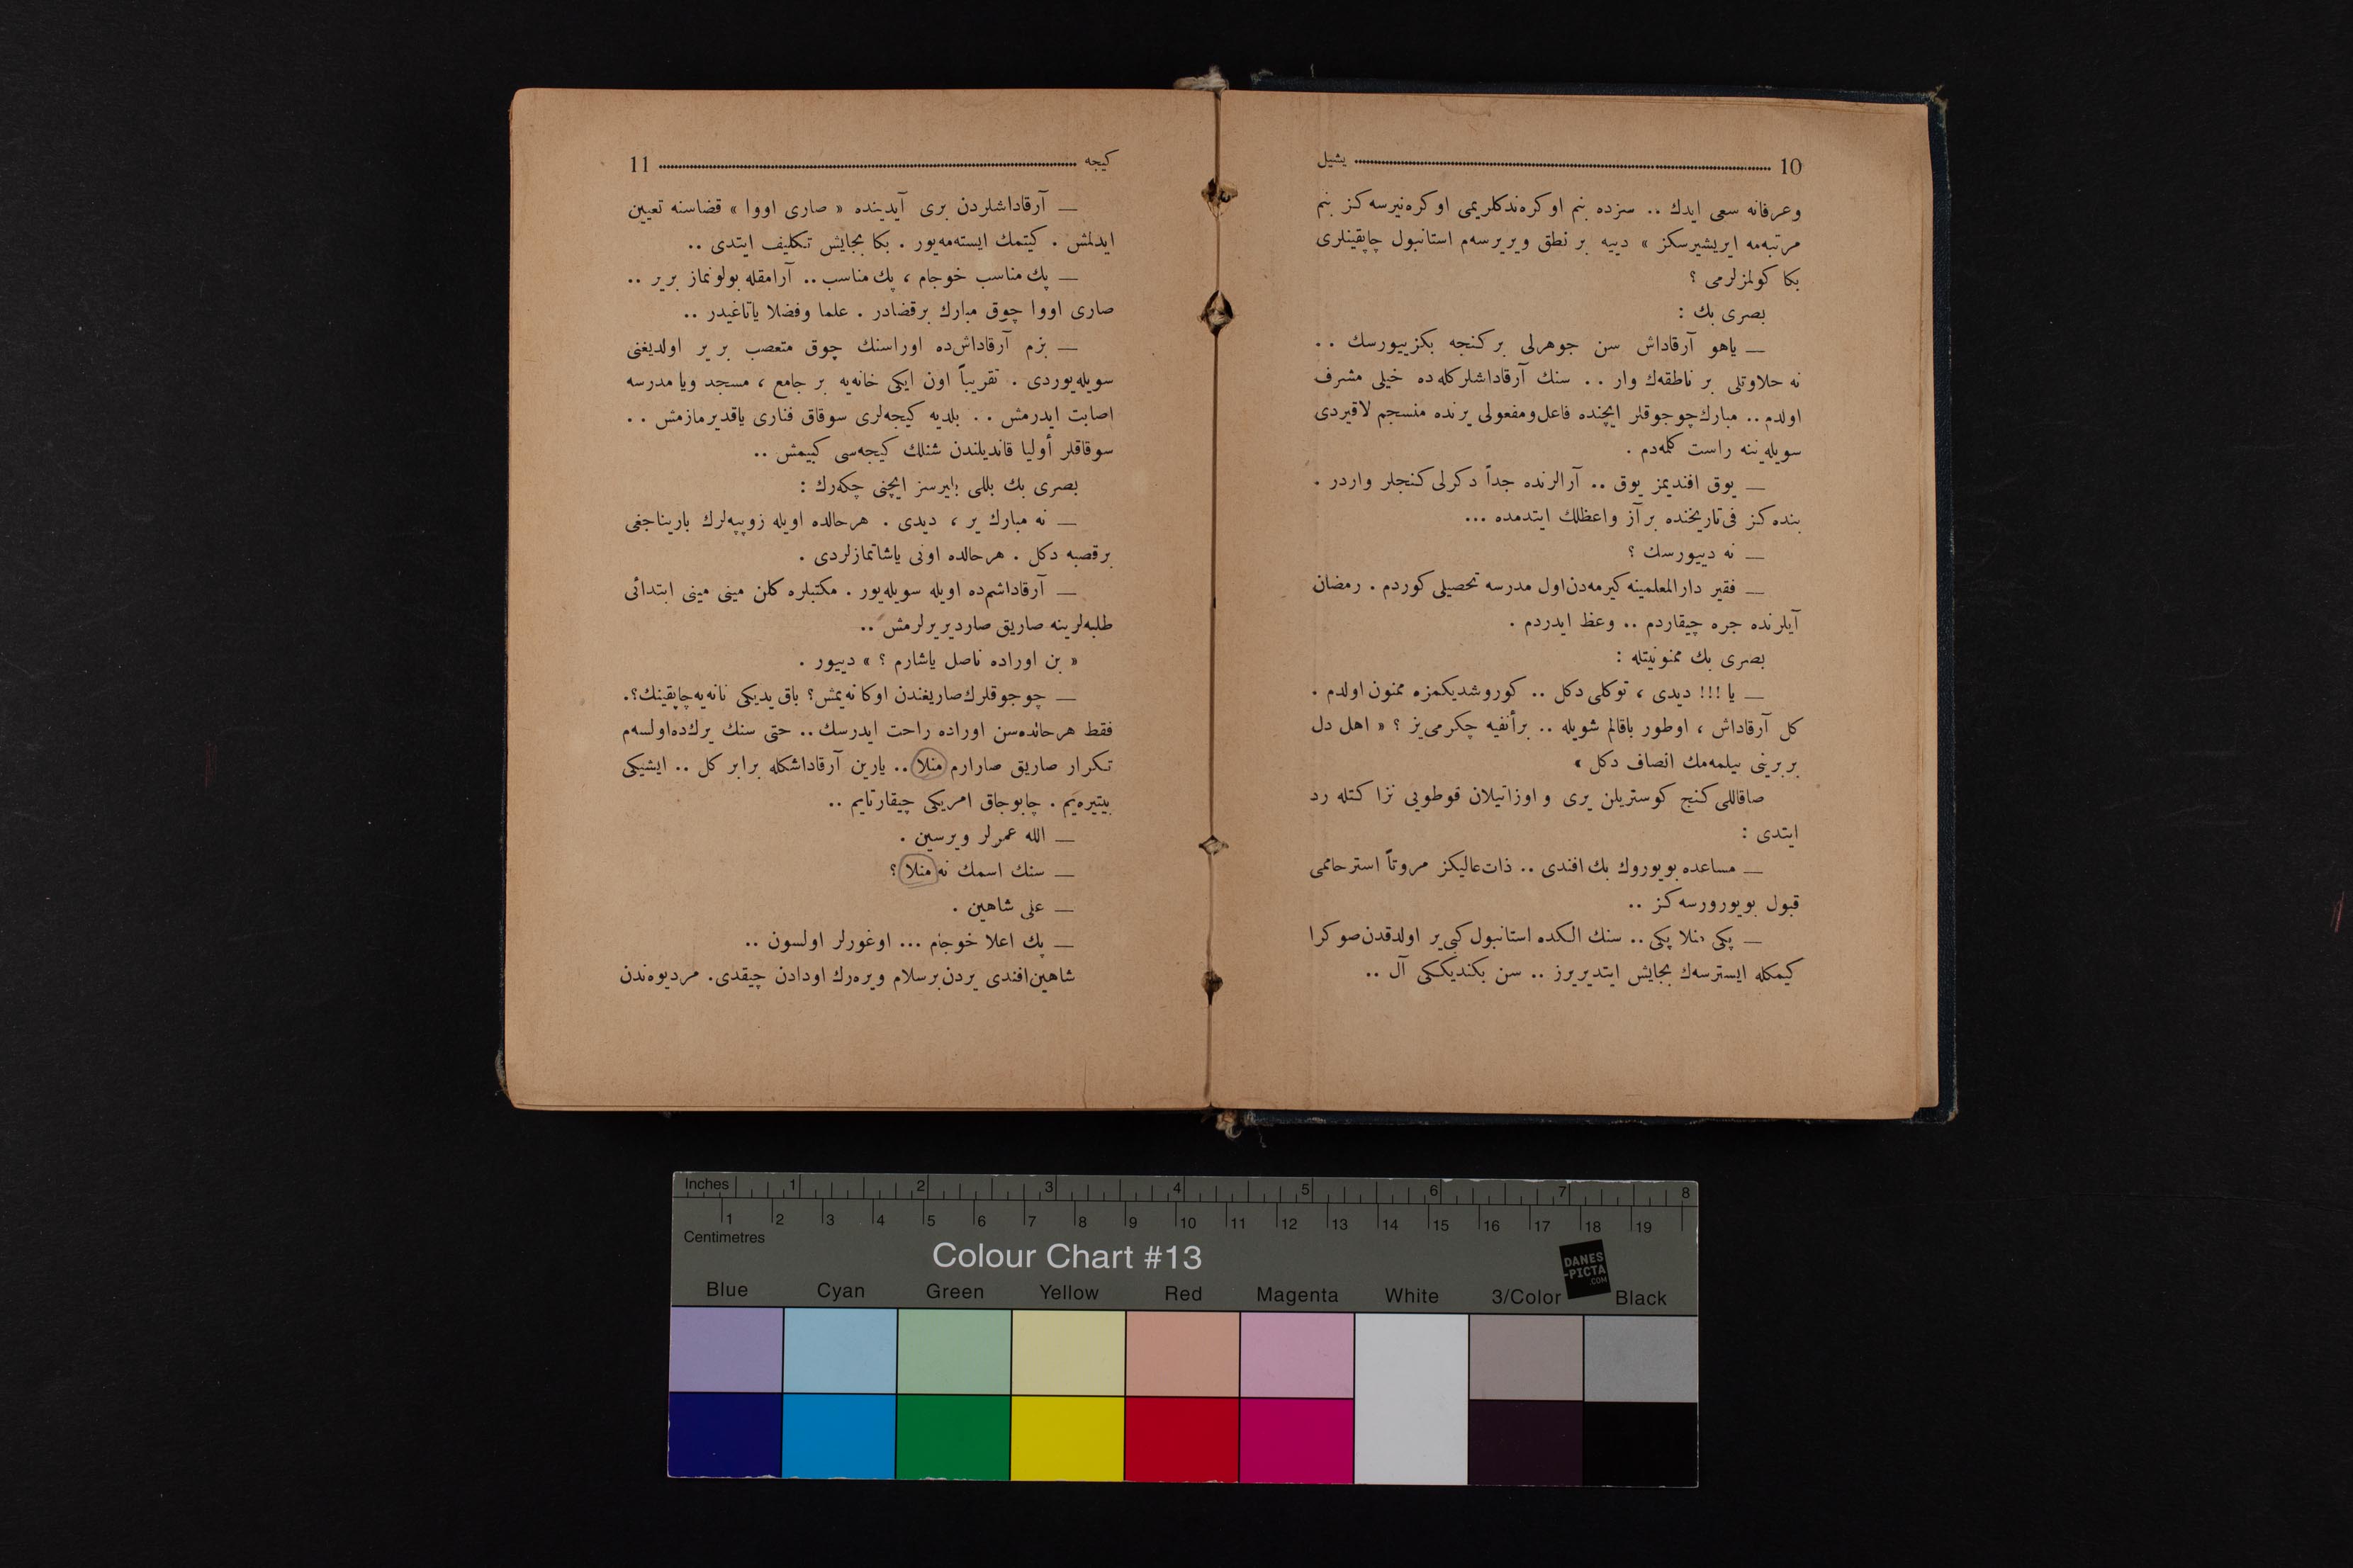 10 يشيل
وعرفانه سعی ايدك .. سزده بنم اوكره‌ندكلريمی اوكره‌نيرسه‌كز بنم
مرتبه‌مه ايريشيرسكز » دييه بر نطق ويريرسه‌م استانبول چاپقينلری
بكا كولمزلرمی ؟
بصری بك :
— ياهو آرقاداش سن جوهرلی بر كنجه بكزييورسك ..
نه حلاوتلی بر ناطقه‌ك وار .. سنك آرقاداشلركله‌ده خيلی مشرف
اولدم .. مبارك چوجوقلر ايچنده فاعل‌ومفعولی يرنده منسجم لاقيردی
سويله‌يننه راست كلمه‌دم .
— يوق افنديمز يوق .. آرالرنده جداً دكرلی كنجلر واردر .
بنده‌كز فی‌تاريخنده بر آز واعظلك ايتدمده ...
— نه دييورسك ؟
— فقير دارالمعلمينه كيرمه‌دن‌اول مدرسه تحصيلی كوردم . رمضان
آيلرنده جره چيقاردم .. وعظ ايدردم .
بصری بك ممنونيتله :
— يا !!! ديدی ، توكلی دكل .. كوروشديكمزه ممنون اولدم .
كل آرقاداش ، اوطور باقالم شويله .. برأنفيه چكرمی‌يز ؟ « اهل دل
بربرينی بيلمه‌مك انصاف دكل »
صاقاللی كنج كوستريلن يری و اوزاتيلان قوطويی نزاكتله رد
ايتدی :
— مساعده بويوروك بك افندی .. ذات‌عاليكز مروتاً استرحاممی
قبول بويورورسه‌كز ..
— پكی منلا پكی .. سنك الكده استانبول كبی ير اولدقدن‌صوكرا
كيمكله ايسترسه‌ك بجايش ايتديريرز .. سن بكنديككی آل ..
كيجه 11
— آرقاداشلردن بری آيدينده « صاری اووا » قضاسنه تعيين
ايدلمش . كيتمك ايسته‌مه‌يور . بكا بجايش تكليف ايتدی ..
— پك مناسب خوجام ، پك مناسب .. آرامقله بولونماز بر ير ..
صاری اووا چوق مبارك برقضادر . علما وفضلا ياتاغيدر ..
— بزم آرقاداش‌ده اوراسنك چوق متعصب بر ير اولديغنی
سويله‌يوردی . تقريباً اون ايكی خانه‌يه بر جامع ، مسجد ويا مدرسه
اصابت ايدرمش .. بلديه كيجه‌لری سوقاق فناری ياقديرمازمش ..
سوقاقلر أوليا قانديلندن شنلك كيجه‌سی كبيمش ..
بصری بك بللی بليرسز ايچنی چكه‌رك :
— نه مبارك ير ، ديدی . هرحالده اويله زوپپه‌لرك باريناجغی
برقصبه دكل . هرحالده اونی ياشاتمازلردی .
— آرقاداشم‌ده اويله سويله‌يور . مكتبلره كلن مينی مينی ابتدائی
طلبه‌لرينه صاريق صارديريرلرمش ..
« بن اوراده ناصل ياشارم ؟ » دييور .
— چوجوقلرك‌صاريغندن اوكا نه‌يمش؟ باق يديكی نانه‌يه‌چاپقينك؟.
فقط هرحالده‌سن اوراده راحت ايدرسك .. حتی سنك يرك‌ده‌اولسه‌م
تكرار صاريق صارارم منلا .. يارين آرقاداشكله برابر كل .. ايشيكی
بيتيره‌يم . چابوجاق امريكی چيقارتايم ..
— الله عمرلر ويرسين .
— سنك اسمك نه منلا ؟
— علی شاهين .
— پك اعلا خوجام ... اوغورلر اولسون ..
شاهين‌افندی يردن‌برسلام ويره‌رك اودادن چيقدی . مرديوه‌ندن
Inches 1 2 3 4 5 6 7 8
1 2 3 4 5 6 7 8 9 10 11 12 13 14 15 16 17 18 19
Centimetres
Colour Chart #13
DANES
-PICTA
.COM
Blue Cyan Green Yellow Red Magenta White 3/Color Black